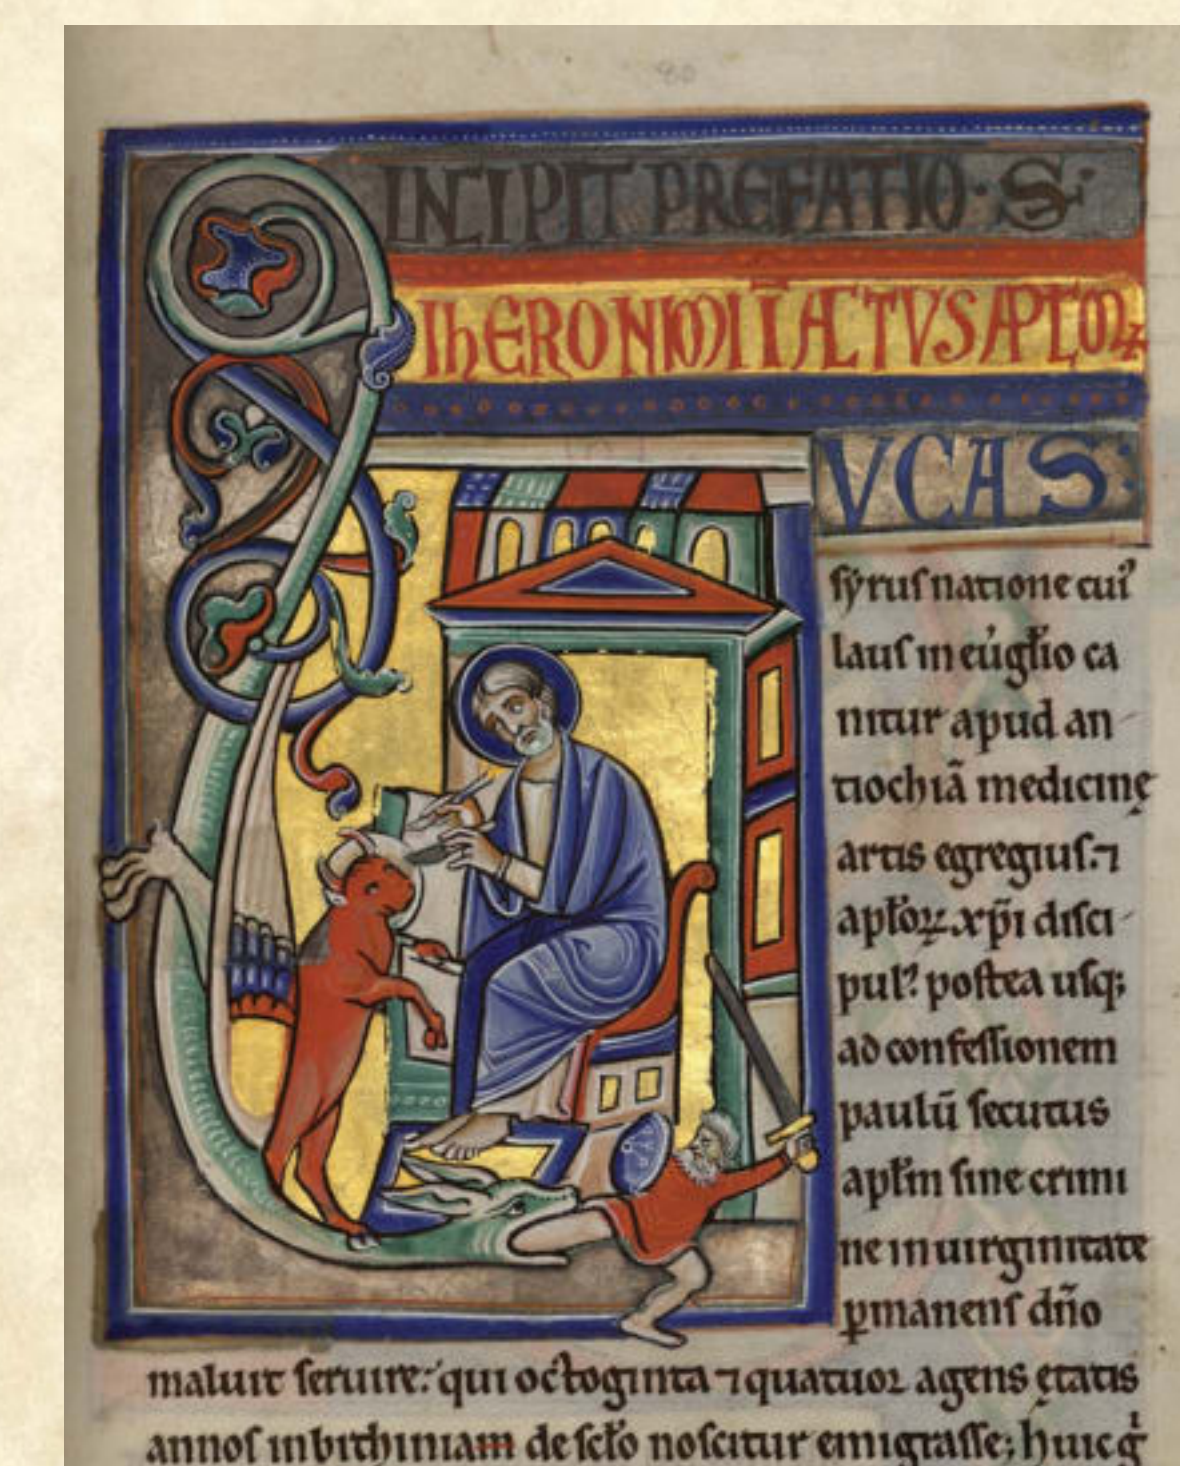 80
INCIPIT PREFATIO · S ·
IhERONIMI Ī ACTVS APLO᷒Ꝝ
VCAS :
sẏrus natione cuiꝰ
laus in eu̇gl̄io ca
nitur apud an
tiochiā medicinę
artis egregius.⁊
apl̄oꝝ xp̄i disci
pulꝰ postea usq;
ad confessionem
paulū secutus
apl̄m sine crimi
ne in uirginitate
ꝑmanens dn̄o
maluit seruire: qui octoginta ⁊ quatuor agens ętatis
annos in bithiniam de scl̄o noscitur emigrasse; huic gͥ